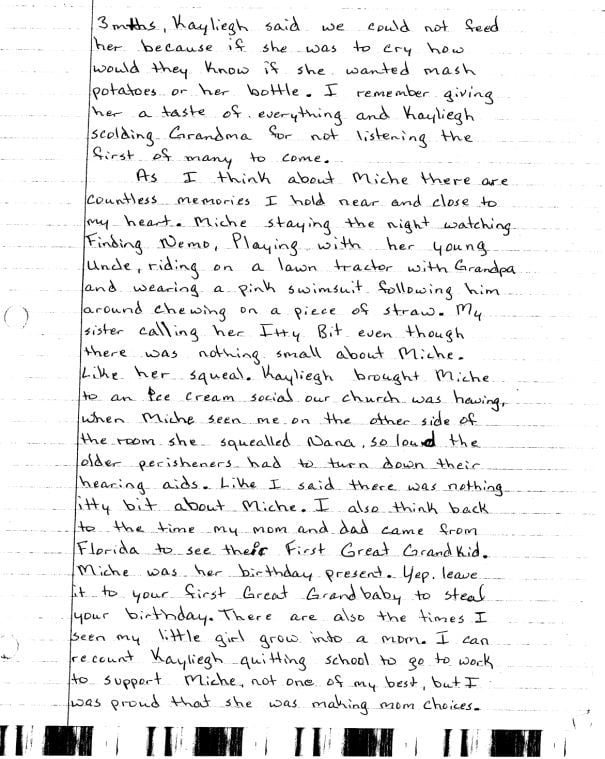 3mths, Kayliegh said we could not feed
her because if she was to cry how
would they know if she wanted mash
potatoes or her bottle. I remember giving
her a taste of everything and Kayliegh
scolding Grandma for not listening the
first of many to come.
As I think about Miche there are
countless memories I hold near and close to
my heart. Miche staying the night watching
Finding Nemo, Playing with her young
Uncle, riding on a lawn tractor with Grandpa
and wearing a pink swimsuit following him
around chewing on a piece of straw. My
sister calling her Itty Bit even though
there was nothing small about Miche.
Like her squeal. Kayliegh brought Miche
to an Ice Cream social our church was having,
when Miche seen me on the other side of
the room she squealled Nana, so loud the
older perisheners had to turn down their
hearing aids. Like I said there was nothing
itty bit about Miche. I also think back
to the time my mom and dad came from
Florida to see their First Great GrandKid.
Miche was her birthday present. Yep. leave
it to your first Great Grandbaby to steal
your birthday. There are also the times I
seen my little girl grow into a mom. I can
recount Kayliegh quitting school to go to work
to support Miche, not one of my best, but I
was proud that she was making mom choices.